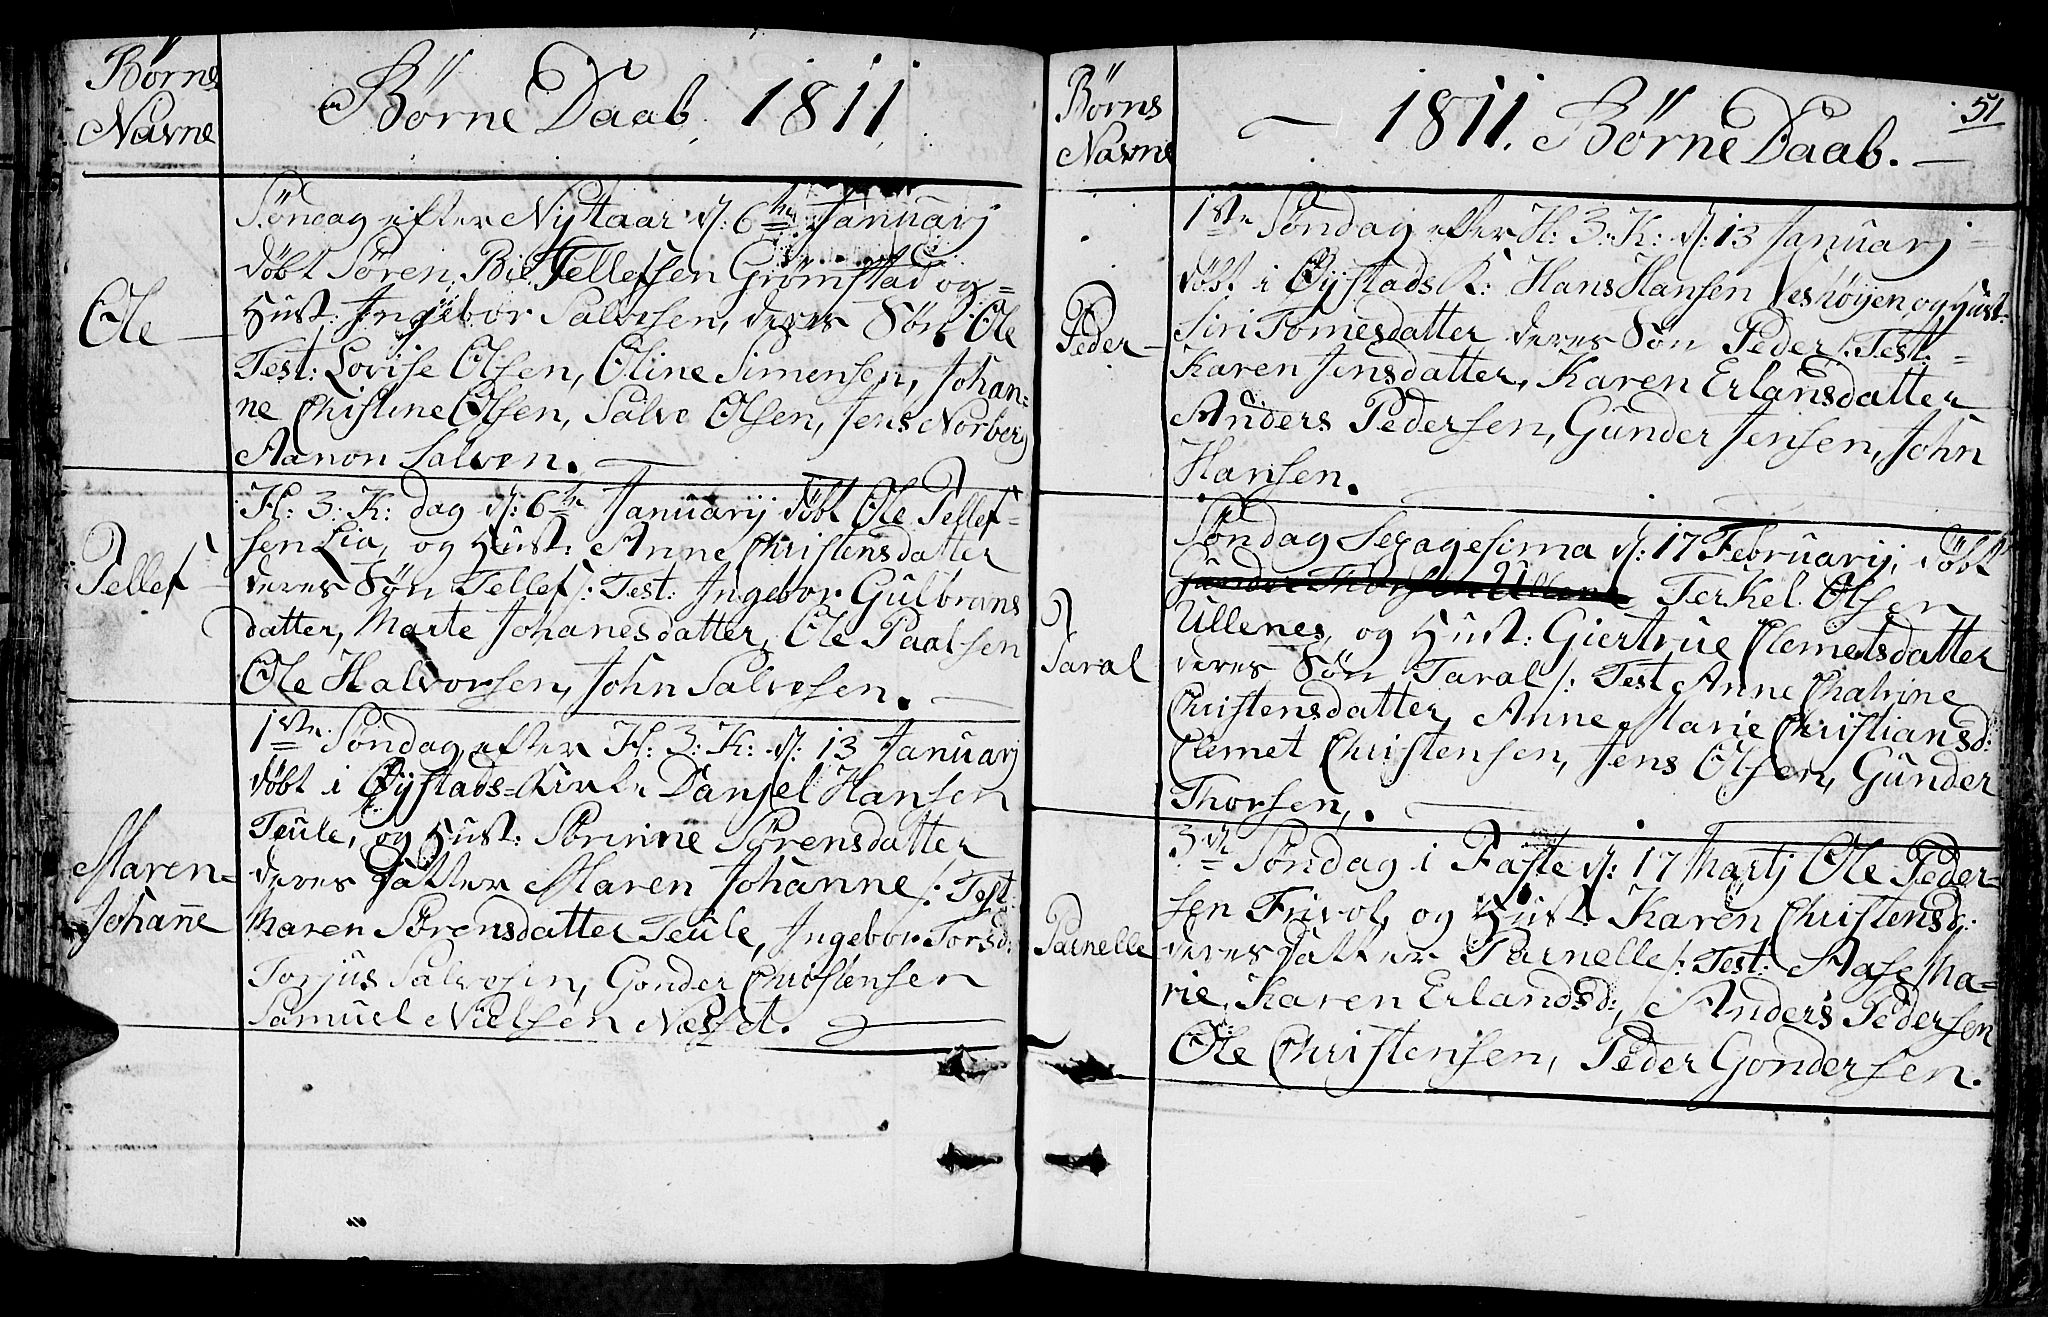 Børne Navne
Børne Daab 1811.
Ole
Søndag efter Nytaar d: 6te Januarj
døbt Søren Tellefsen Grømstad og
Hust: Ingebor Salvesen, deres Søn Ole
Test: Lovise Olsen, Oline Simensen, Johan=
ne Christine Olsen, Salve Olsen, Jens Norberg
Aanon Salven.
Tellef
H: 3: K: dag d: 6te Januarij døbt Ole Tellef=
sen Lia, og Hust: Anne Christensdatter
deres Søn Tellef /: Test: Ingebor Gulbrans
datter, Marte Johanesdatter, Ole Paalsen
Ole Halvorsen, John Salvesen.
Maren=
Johanne
1ste Søndag efter H: 3: K: d: 13 Januarj
døbt i Øyestads=Kirke Danjel Hansen
Teule, og Hust: Sørinne Sørensdatter
deres Datter Maren Johanne /: Test:
Maren Sørensdatter Teule, Ingebor Torsd:
Torjus Salvesen, Gonder Christensen
Samuel Nielsen Næsset.
Børns Navne
1811. Børne Daab.
51
Peder
1ste Søndag efter H: 3: K: d: 13 Januarj
døbt i Øystads K: Hans Hansen Veshøyen og Hust:
Siri Tomesdatter deres Søn Peder /: Test:
Karen Jensdatter, Karen Erlansdatter
Anders Pedersen, Gunder Jensen, John
Hansen.
Taral
Søndag Sexagesima d: 17 Februarij, døbt
Gunder Thorsen Ullenes Terkel Olsen
Ullenes, og Hust: Giertrue Clemetsdatter
deres Søn Taral /: Test Anne Chatrine
Christensdatter, Anne Marie Christiansd:
Clemet Christensen, Jens Olsen, Gunder
Thorsen,.
Parnelle
3de Søndag i Faste d: 17 Martj Ole Peder=
sen Frivol, og Hust: Karen Christensd:
deres Datter Parnelle /: Test: Aase Ma=
rie, Karen Erlandsd:, Anders Pedersen
Ole Christensen, Peder Gondersen.